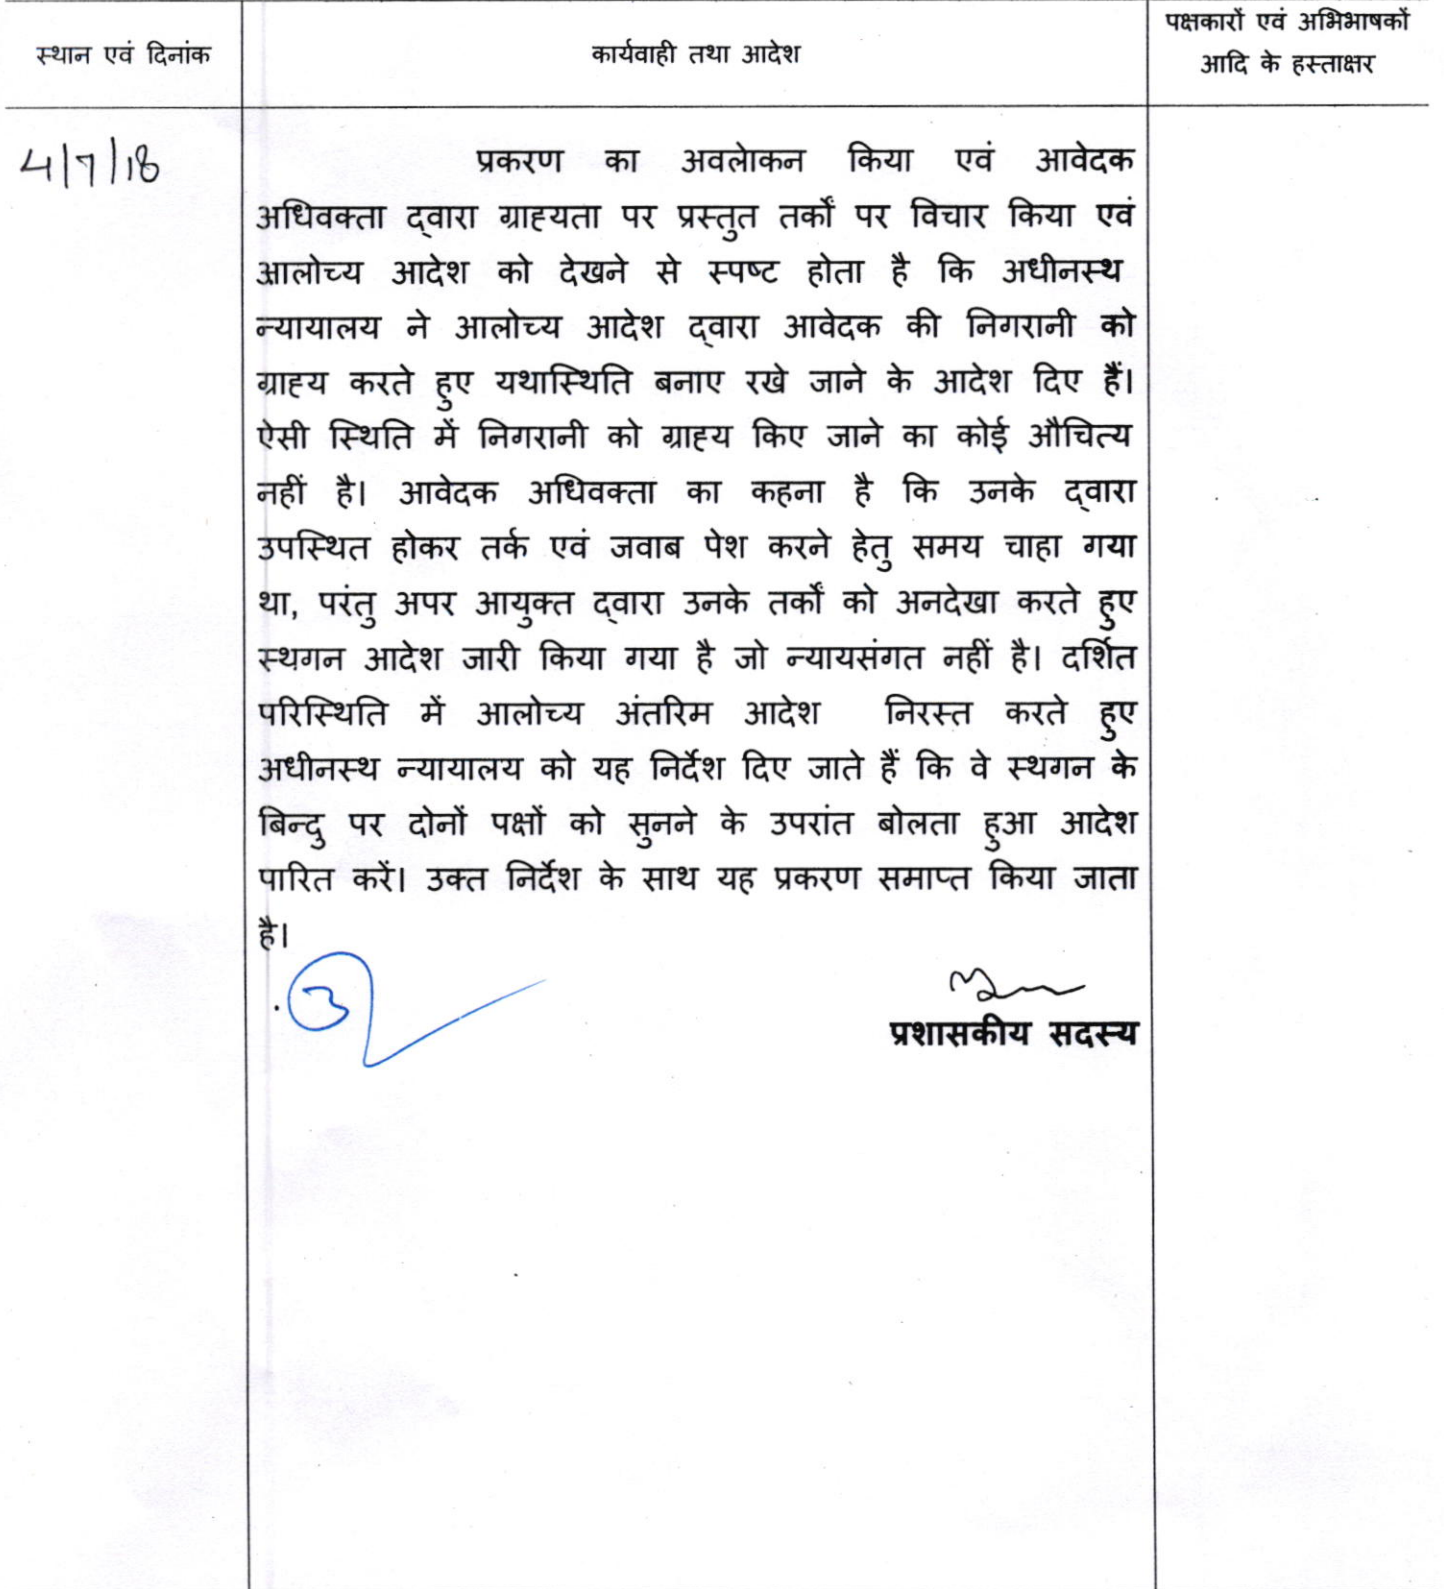 स्थान एवं दिनांक
कार्यवाही तथा आदेश
पक्षकारों एवं अभिभाषकों
आदि के हस्ताक्षर
4/7/18
प्रकरण का अवलोकन किया एवं आवेदक
अधिवक्ता द्वारा ग्राह्यता पर प्रस्तुत तर्कों पर विचार किया एवं
आलोच्य आदेश को देखने से स्पष्ट होता है कि अधीनस्थ
न्यायालय ने आलोच्य आदेश द्वारा आवेदक की निगरानी को
ग्राह्य करते हुए यथास्थिति बनाए रखे जाने के आदेश दिए हैं।
ऐसी स्थिति में निगरानी को ग्राह्य किए जाने का कोई औचित्य
नहीं है। आवेदक अधिवक्ता का कहना है कि उनके द्वारा
उपस्थित होकर तर्क एवं जवाब पेश करने हेतु समय चाहा गया
था, परंतु अपर आयुक्त द्वारा उनके तर्कों को अनदेखा करते हुए
स्थगन आदेश जारी किया गया है जो न्यायसंगत नहीं है। दर्शित
परिस्थिति में आलोच्य अंतरिम आदेश निरस्त करते हुए
अधीनस्थ न्यायालय को यह निर्देश दिए जाते हैं कि वे स्थगन के
बिन्दु पर दोनों पक्षों को सुनने के उपरांत बोलता हुआ आदेश
पारित करें। उक्त निर्देश के साथ यह प्रकरण समाप्त किया जाता
है।
प्रशासकीय सदस्य